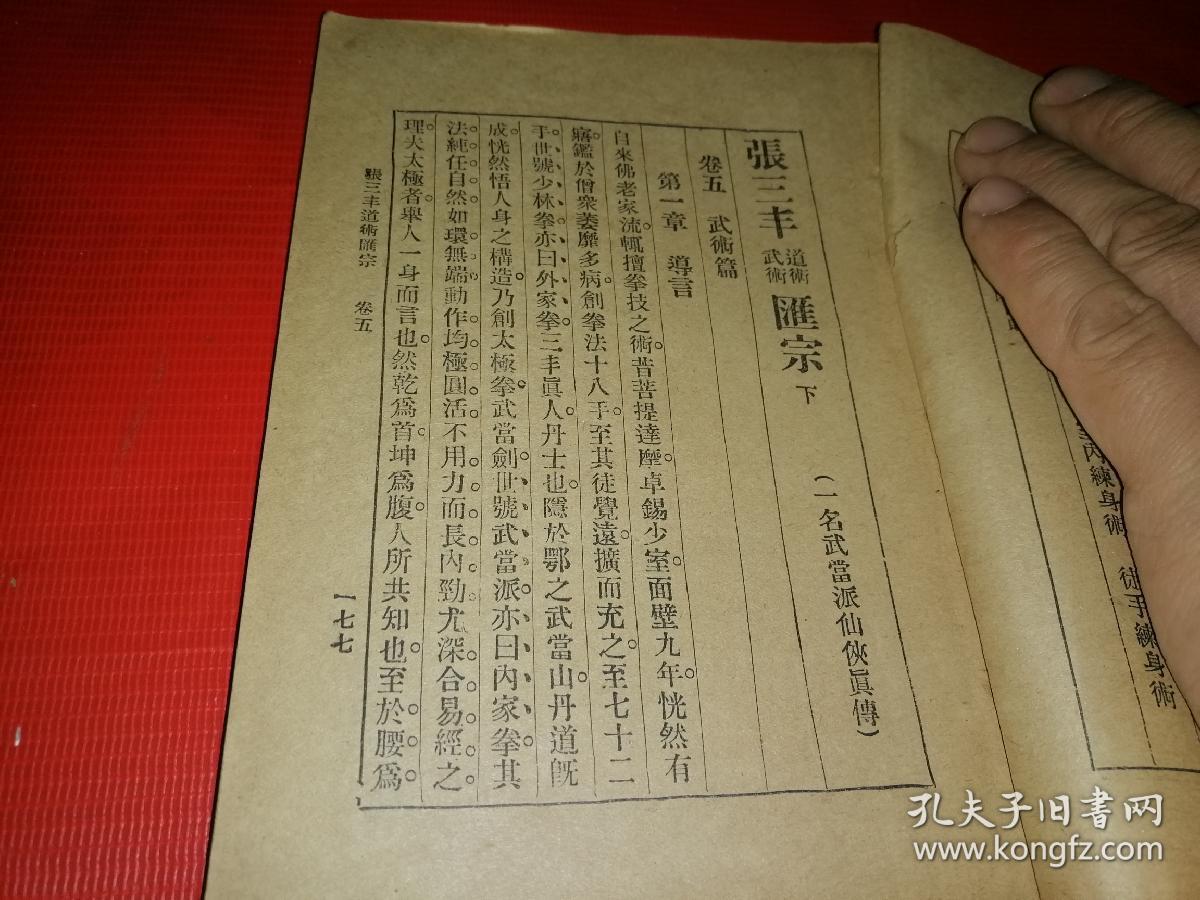 張三丰道術武術匯宗下
(一名武當派仙俠眞傳)
卷五 武術篇
第一章 導言
自來佛老家流。輒擅拳技之術。昔菩提達摩。卓錫少室。面壁九年。恍然有
寤。鑑於僧衆萎靡多病。創拳法十八手。至其徒覺遠。擴而充之。至七十二
手。世號少林拳。亦曰外家拳。三丰眞人。丹士也。隱於鄂之武當山。丹道旣
成。恍然悟人身之構造。乃創太極拳。武當劍。世號武當派。亦曰內家拳。其
法純任自然。如環無端。動作均極圓活。不用力而長內勁。尤深合易經之
理。夫太極者。舉人一身而言也。然乾爲首。坤爲腹。人所共知也。至於腰爲
張三丰道術匯宗 卷五
一七七
室內練身術 徒手練身術
孔夫子旧书网
www.kongfz.com